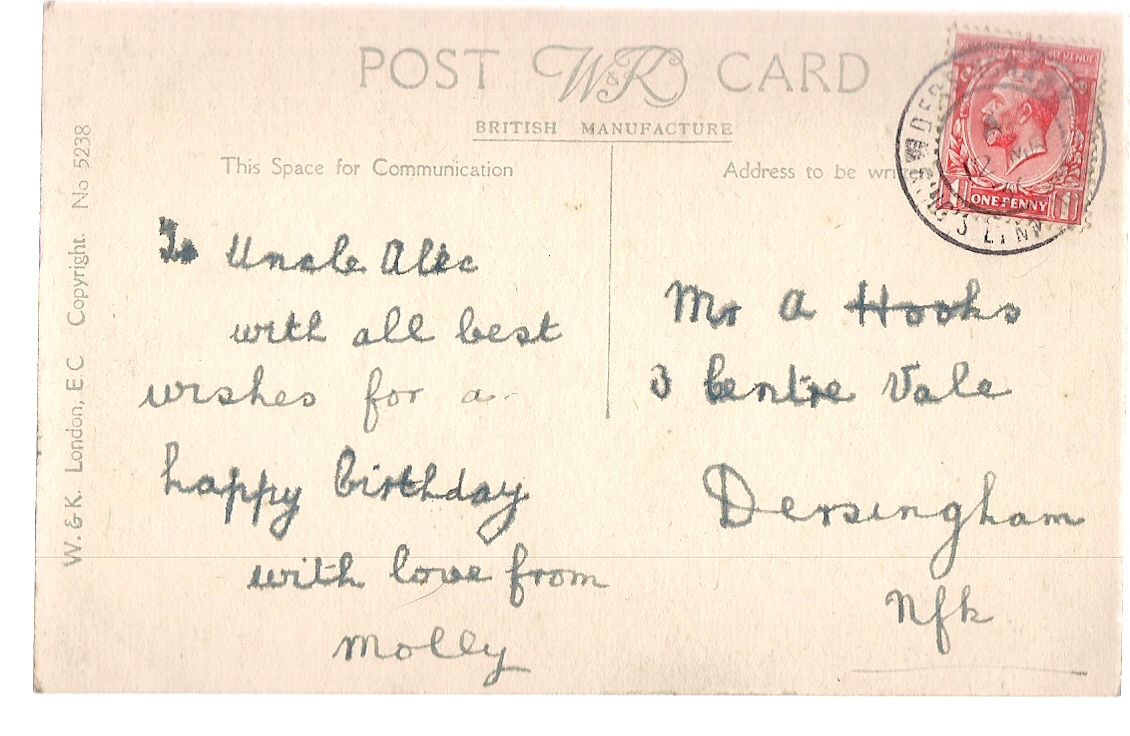 POST W&K CARD
BRITISH MANUFACTURE
This Space for Communication
Address to be
ONE PENNY
W. & K. London, E.C. Copyright. No 5238
To Uncle Alec
with all best
wishes for a
happy birthday
with love from
Molly
Mr A Hooks
3 Centre Vale
Dersingham
Nfk